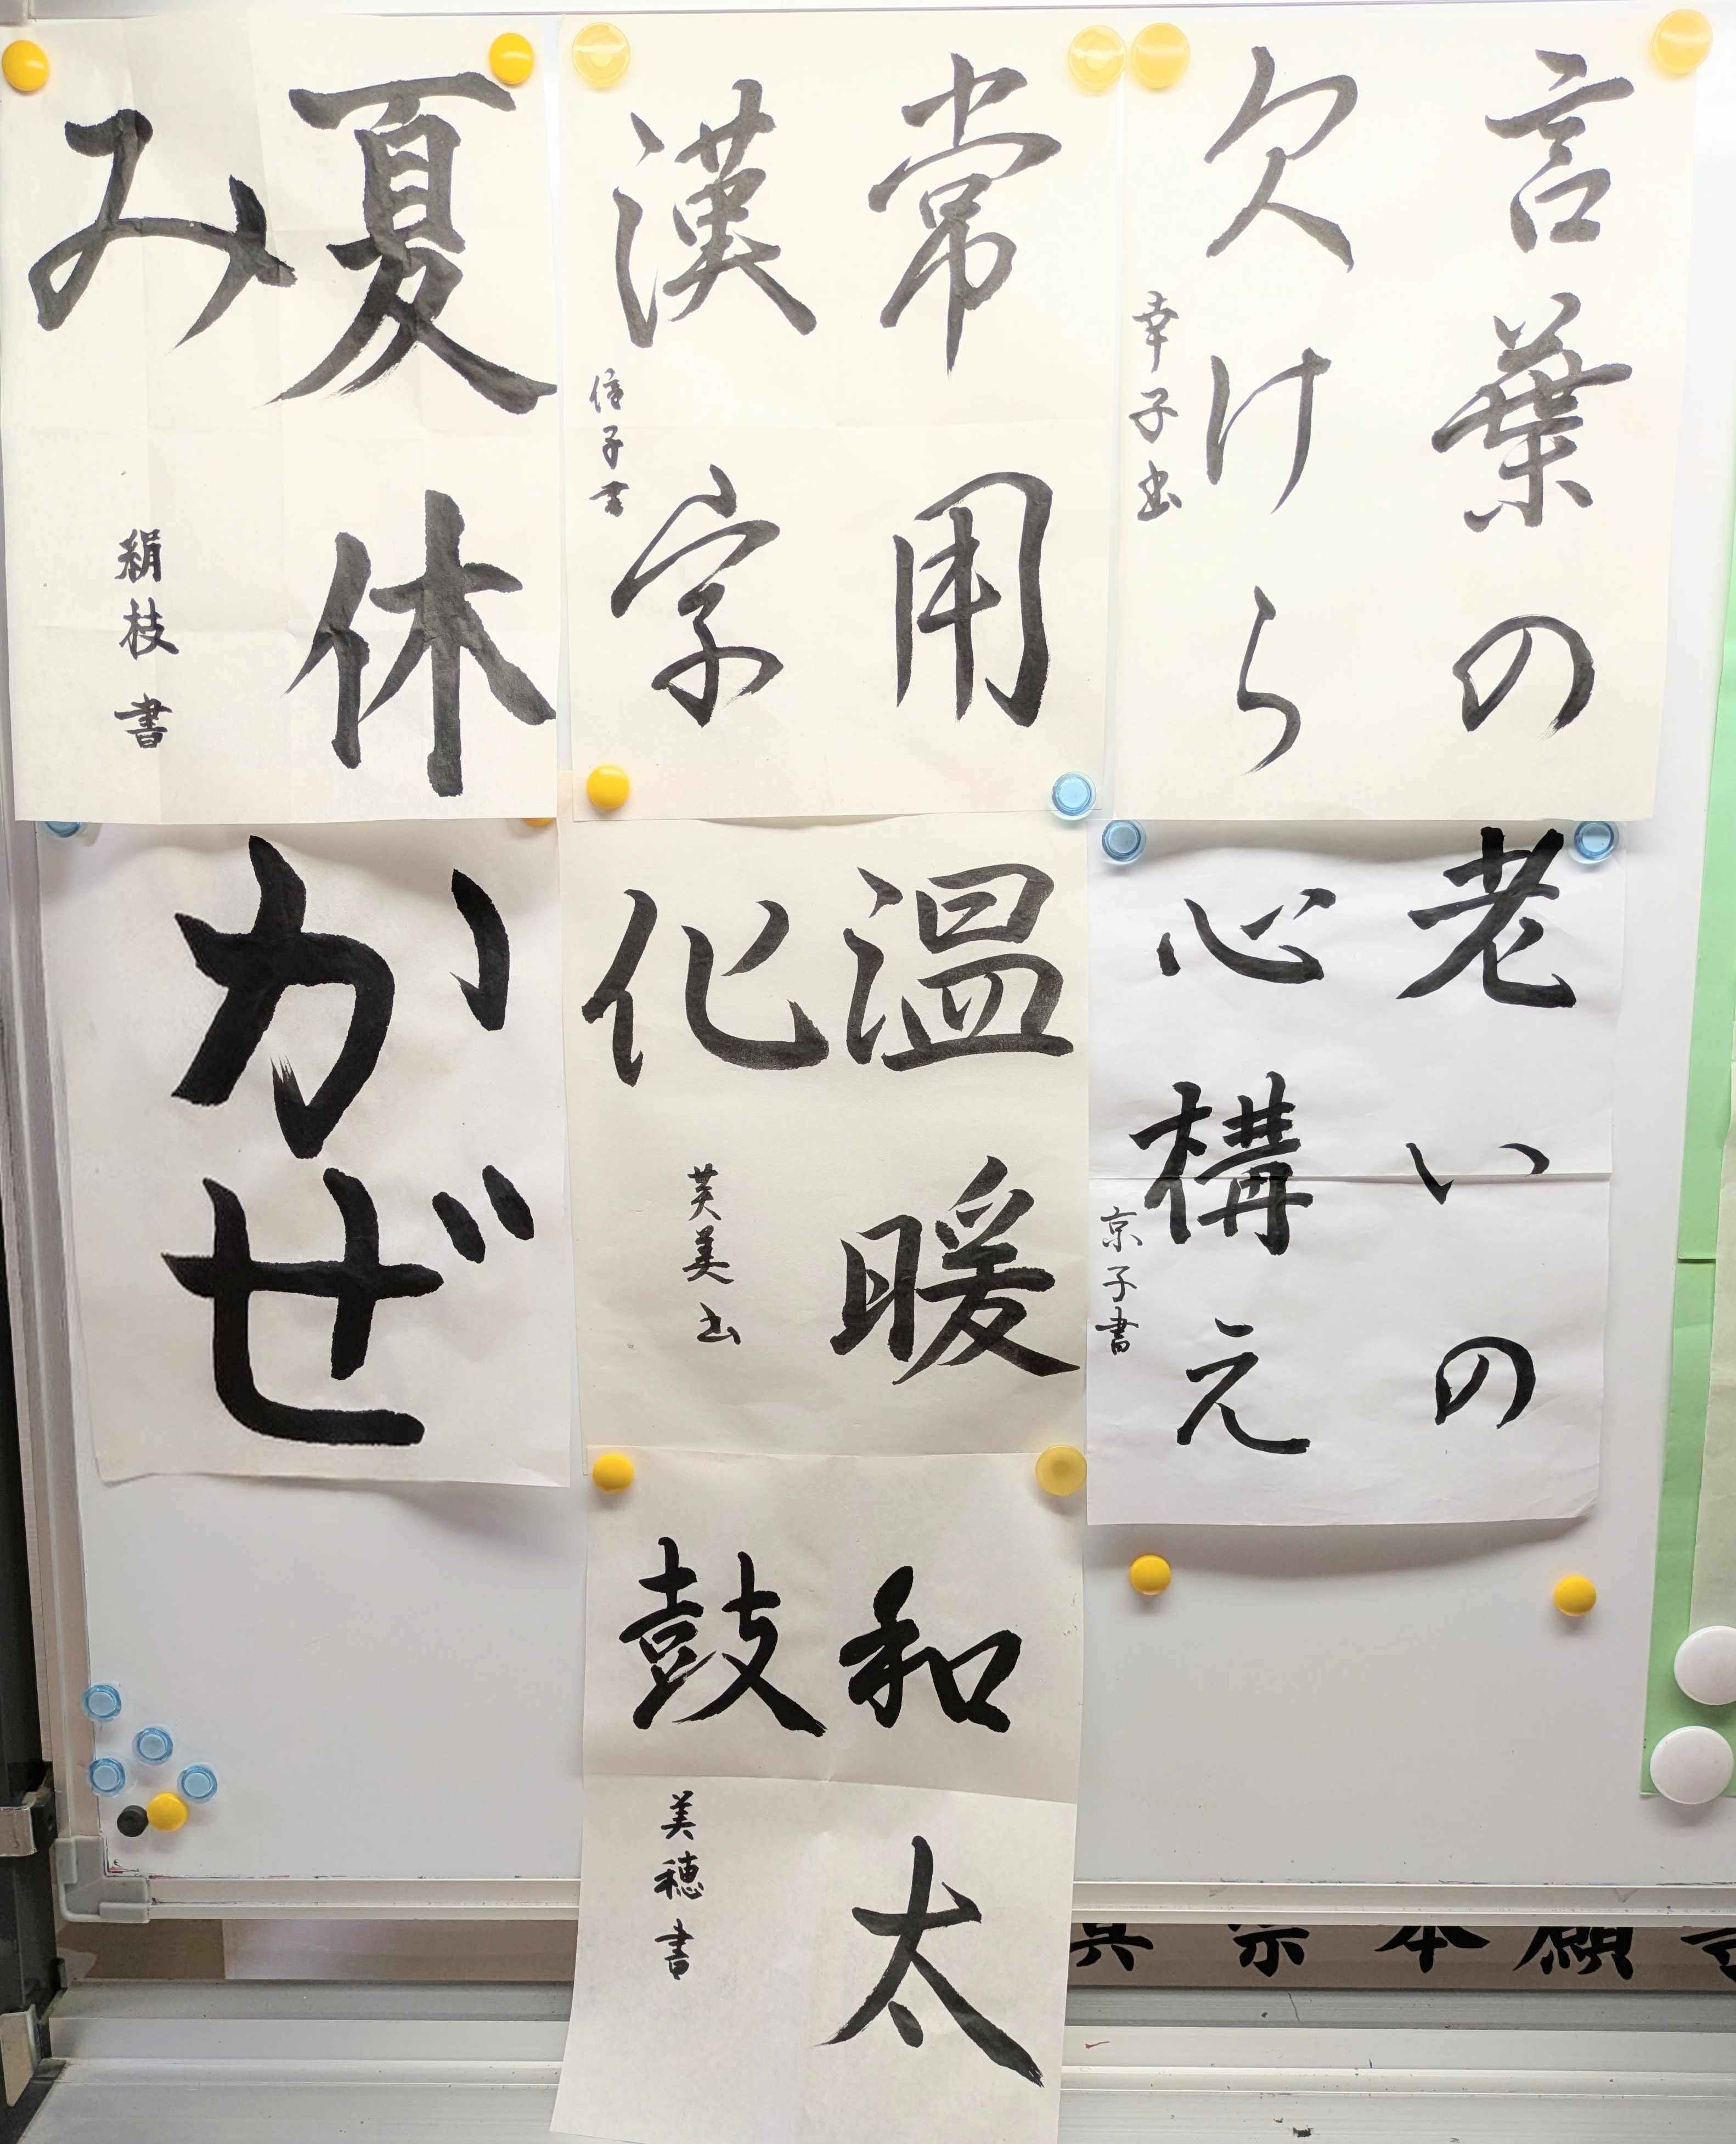 言葉の
欠けら
幸子書
常用
漢字
信子書
夏休
み
絹枝書
老いの
心構え
京子書
温暖
化
芙美書
かぜ
和太
鼓
美穂書
真宗本願寺